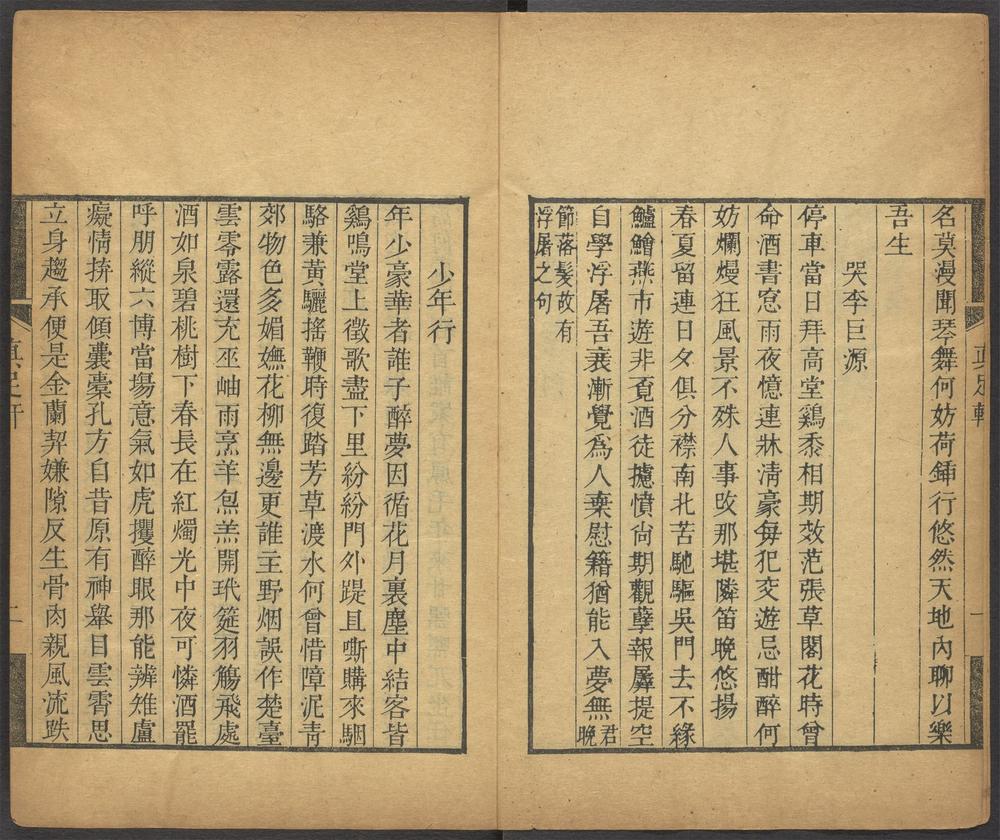 名莫漫聞琴舞何妨荷鍤行悠然天地內聊以樂
吾生
哭李巨源
停車當日拜高堂鷄黍相期效范張草閣花時曾
命酒書窓雨夜憶連牀淸豪每犯交遊忌酣醉何
妨爛熳狂風景不殊人事改那堪隣笛晚悠揚
春夏留連日夕俱分襟南北苦馳驅吳門去不緣
鱸鱠燕市遊非覔酒徒攄憤尚期觀孽報屢提空
自學浮屠吾衰漸覺爲人棄慰籍猶能入夢無
君晚
節落髮故有
浮屠之句
眞足軒
一
少年行
年少豪華者誰子醉夢因循花月裏塵中結客皆
鷄鳴堂上徵歌盡下里紛紛門外踶且嘶購來駰
駱兼黃驪搖鞭時復踏芳草渡水何曾惜障泥靑
郊物色多媚嫵花柳無邊更誰主野烟誤作楚臺
雲零露還充巫岫雨烹羊炰羔開玳筵羽觴飛處
酒如泉碧桃樹下春長在紅燭光中夜可憐酒罷
呼朋縱六博當塲意氣如虎攫醉眼那能辨雉盧
癡情拚取傾囊橐孔方自昔原有神舉目雲霄思
立身趨承便是金蘭契嫌隙反生骨肉親風流跌
眞足軒